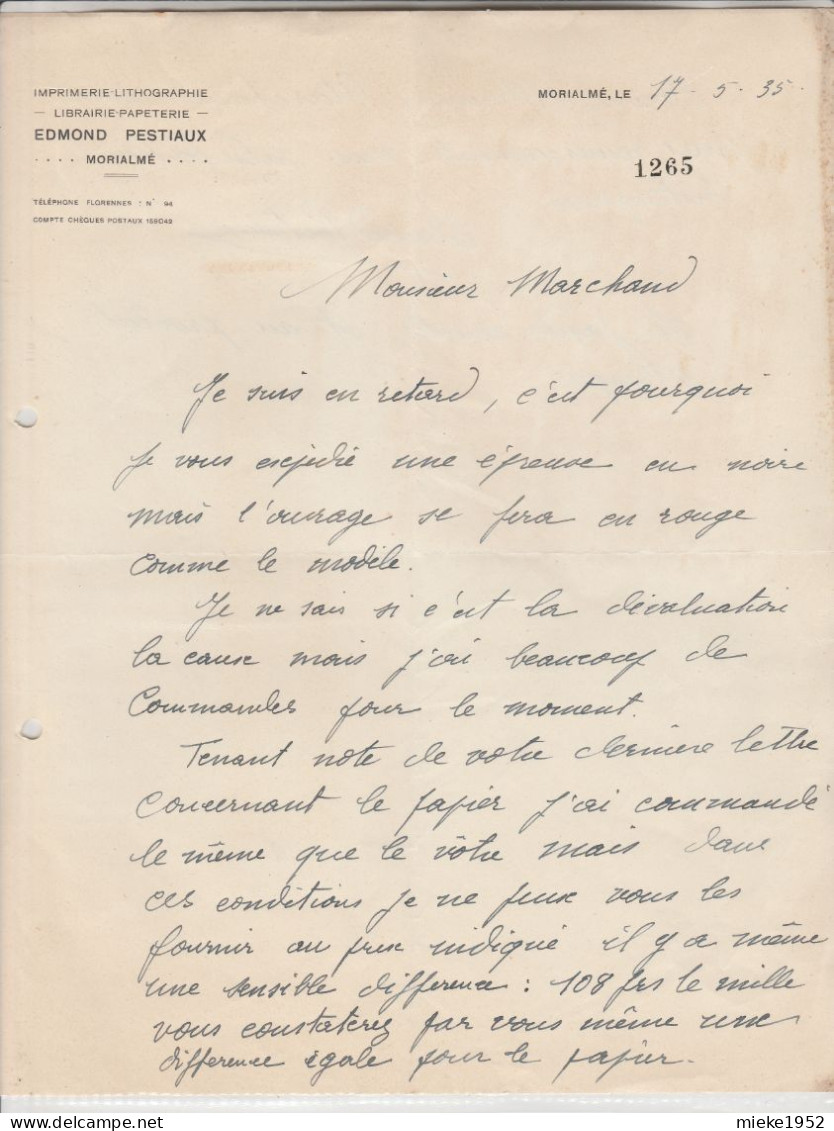 IMPRIMERIE-LITHOGRAPHIE
— LIBRAIRIE-PAPETERIE —
EDMOND PESTIAUX
.... MORIALMÉ ....
TÉLÉPHONE FLORENNES : N° 94
COMPTE CHÈQUES POSTAUX 159049
MORIALMÉ, LE 17-5-35-
1265
Monsieur Marchand
Je suis en retard, c'est pourquoi
je vous expédie une épreuve en noire
mais l'ouvrage se fera en rouge
comme le modèle.
Je ne sais si c'est la dévaluation
la cause mais j'ai beaucoup de
Commandes pour le moment.
Tenant note de votre dernière lettre
concernant le papier j'ai commandé
le même que le vôtre mais dans
ces conditions je ne peux vous les
fournir au prix indiqué il y a même
une sensible différence : 108 frs le mille
vous constaterez par vous même une
différence égale pour le papier.
mieke1952